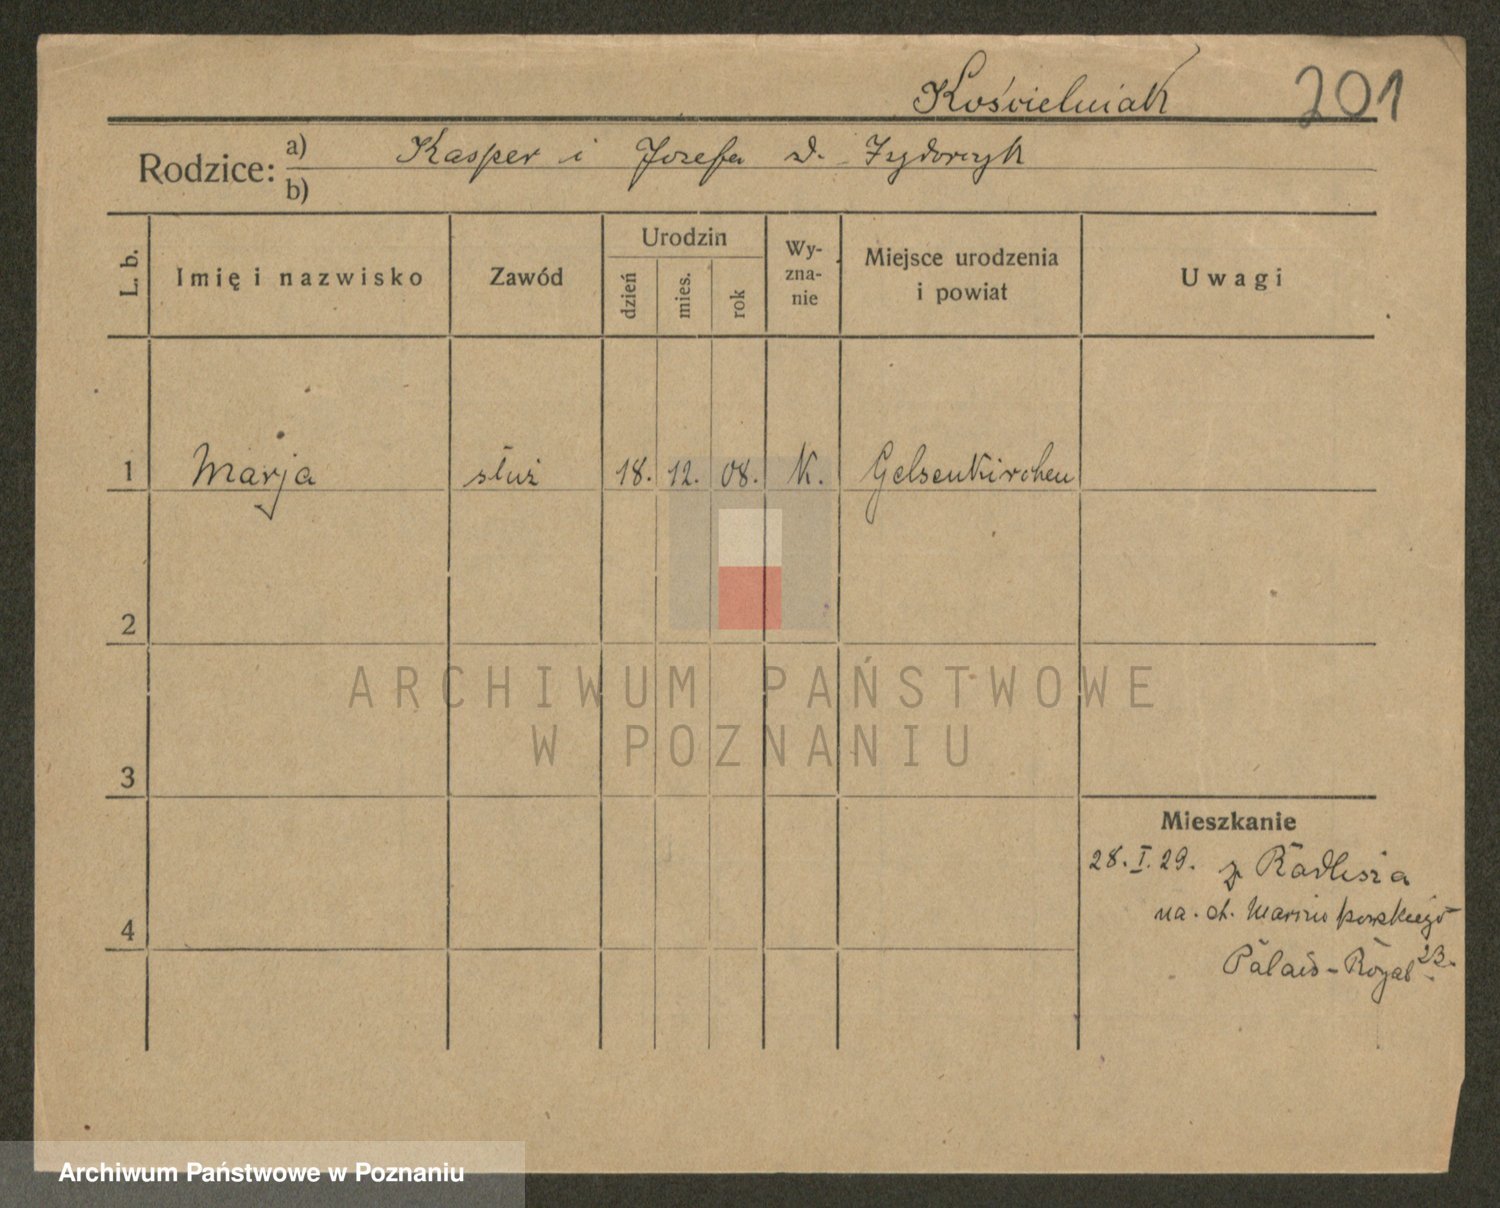 Kościelniak 201
Rodzice: a) Kasper i Józefa d. Izydorczyk
b)
L. b. Imię i nazwisko Zawód Urodzin dzień mies. rok Wy-zna-nie Miejsce urodzenia i powiat Uwagi
1 Marja służ 18. 12. 08. K. Gelsenkirchen
2
3
4
Mieszkanie
28. I. 29. z Radlisza
na
Palais-Royal
ARCHIWUM PAŃSTWOWE
W POZNANIU
Archiwum Państwowe w Poznaniu